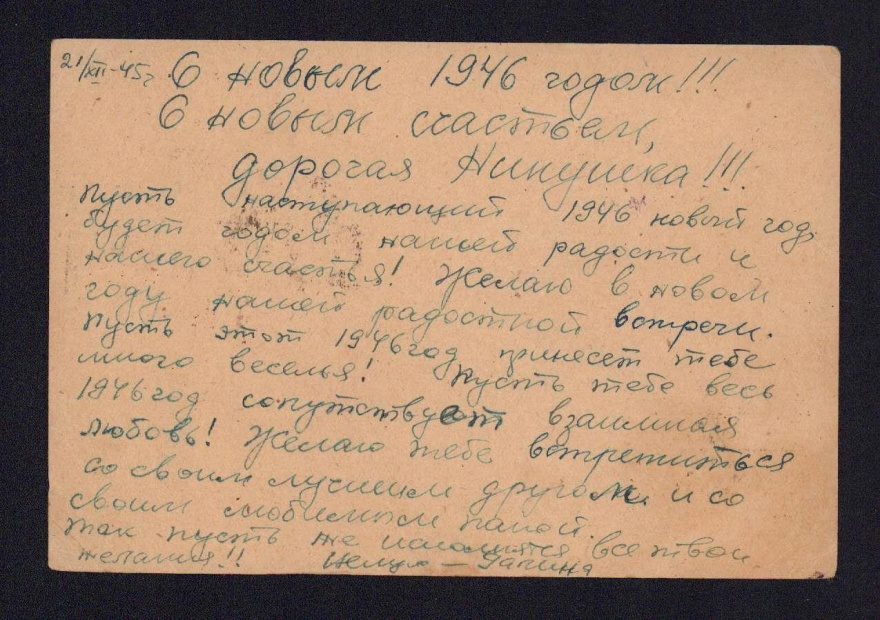 21/XII-45г С новым 1946 годом!!!
С новым счастьем,
дорогая Нинушка!!!
Пусть наступающий 1946 новый год
будет годом нашей радости и
нашего счастья! Желаю в новом
году нашей радостной встречи.
Пусть этот 1946 год принесет тебе
много веселья! Пусть тебе весь
1946 год сопутствует взаимная
любовь! Желаю тебе встретиться
со своим лучшим другом и со
своим любимым папой.
Так пусть же исполнятся все твои
желания!! Целую — Галина